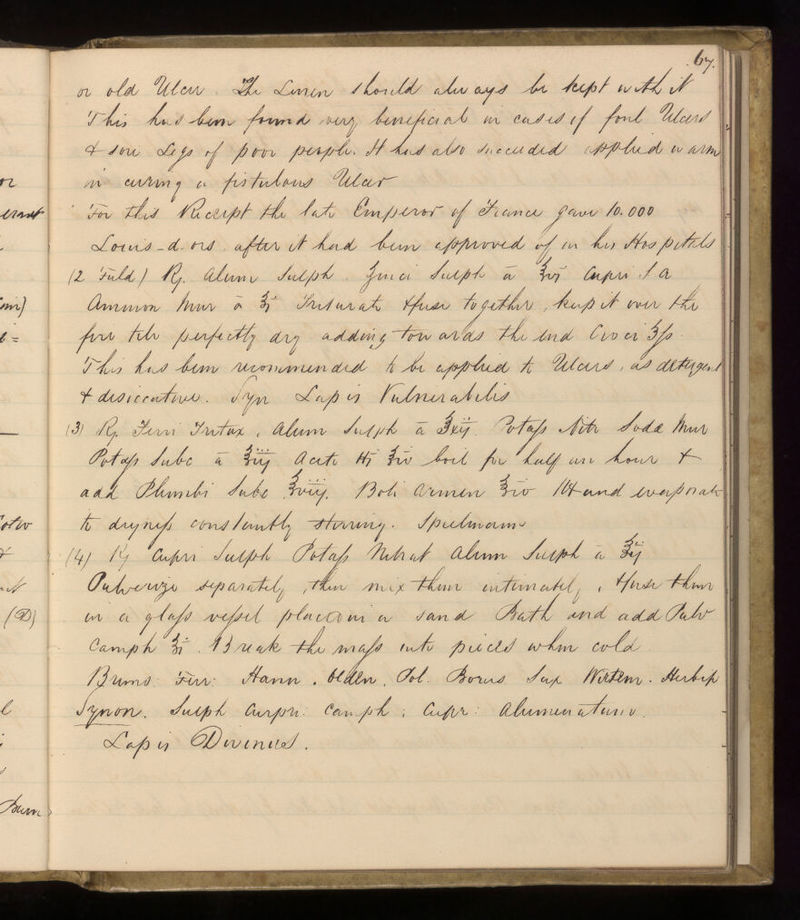 67.
or old Ulcer. The Linen should always be kept with it
This has been found very beneficial in cases of foul Ulcers
& sore Legs of poor people. It has also succeeded applied warm
in curing a fistulous Ulcer
For this Receipt the late Emperor of France gave 10.000
Louis-d'ors after it had been approved of in his Hospitals
(2 Fuld) ℞. Alum Sulph. Zinci Sulph ā ℥vj Cupri S.a
Ammon Mur ā ℥j Triturate & fuse together, keep it over the
fire till perfectly dry adding towards the end Croci ʒſs.
This has been recommended to be applied to Ulcers, as detergent
& desiccative. Syn Lapis Vulnerabilis
(3) ℞. Ferri Tritox, Alum Sulph ā ℥xij. Potaſs Nitr Sodæ Mur
Potaſs Subc ā ℥iij Aceti ℔j ℥iv boil for half an hour &
add Plumbi Subc ℥viij. Boli Armen ℥iv and evaporate
to dryneſs constantly stirring. Spielmann
(4) ℞ Cupri Sulph Potaſs Nitrat Alum Sulph ā ℥ij
Pulverize separately, then mix them intimately, & fuse them
in a glaſs veſsel placed in a sand Bath and add Pulv
Camph ℥j. Break the maſs into pieces when cold
Bruns: Ferr: Hann. Olden. Pol. Borus Sax Wirtem. Herbip
Synon. Sulph Cupri: Camph: Cupr: Aluminatum
Lapis Divinus.
or
&
(D)